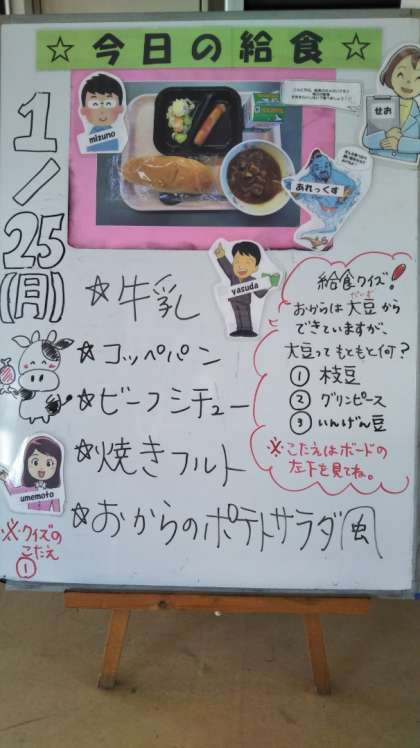 ☆ 今日の給食 ☆
1/25(月)
mizuno
せお
あれっくす
yasuda
umemoto
☆牛乳
☆コッペパン
☆ビーフシチュー
☆焼きフルト
☆おからのポテトサラダ風
給食クイズ!
おからは大豆(だいず)から
できていますが、
大豆ってもともと何?
① 枝豆
② グリンピース
③ いんげん豆
※こたえはボードの
左下を見てね。
※クイズの
こたえ
①